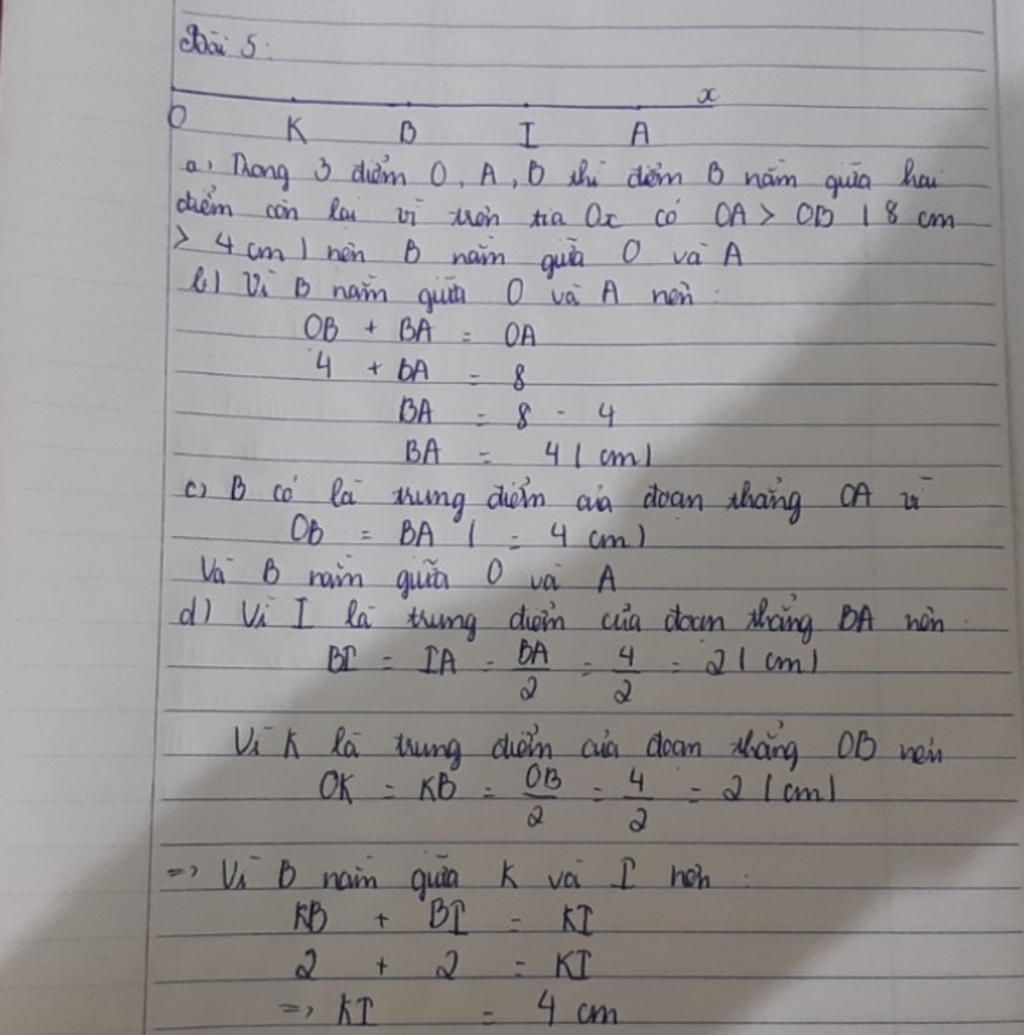 Bài 5:
x
O K B I A
a, Trong 3 điểm O, A, B thì điểm B nằm giữa hai
điểm còn lại vì trên tia Ox có OA > OB ( 8 cm
> 4 cm ) nên B nằm giữa O và A
b) Vì B nằm giữa O và A nên :
OB + BA = OA
4 + BA = 8
BA = 8 - 4
BA = 4 ( cm )
c, B có là trung điểm của đoạn thẳng OA vì
OB = BA ( = 4 cm )
Và B nằm giữa O và A
d) Vì I là trung điểm của đoạn thẳng BA nên
BI = IA = BA/2 = 4/2 = 2 ( cm )
Vì K là trung điểm của đoạn thẳng OB nên
OK = KB = OB/2 = 4/2 = 2 ( cm )
=> Vì B nằm giữa K và I nên :
KB + BI = KI
2 + 2 = KI
=> KI = 4 cm